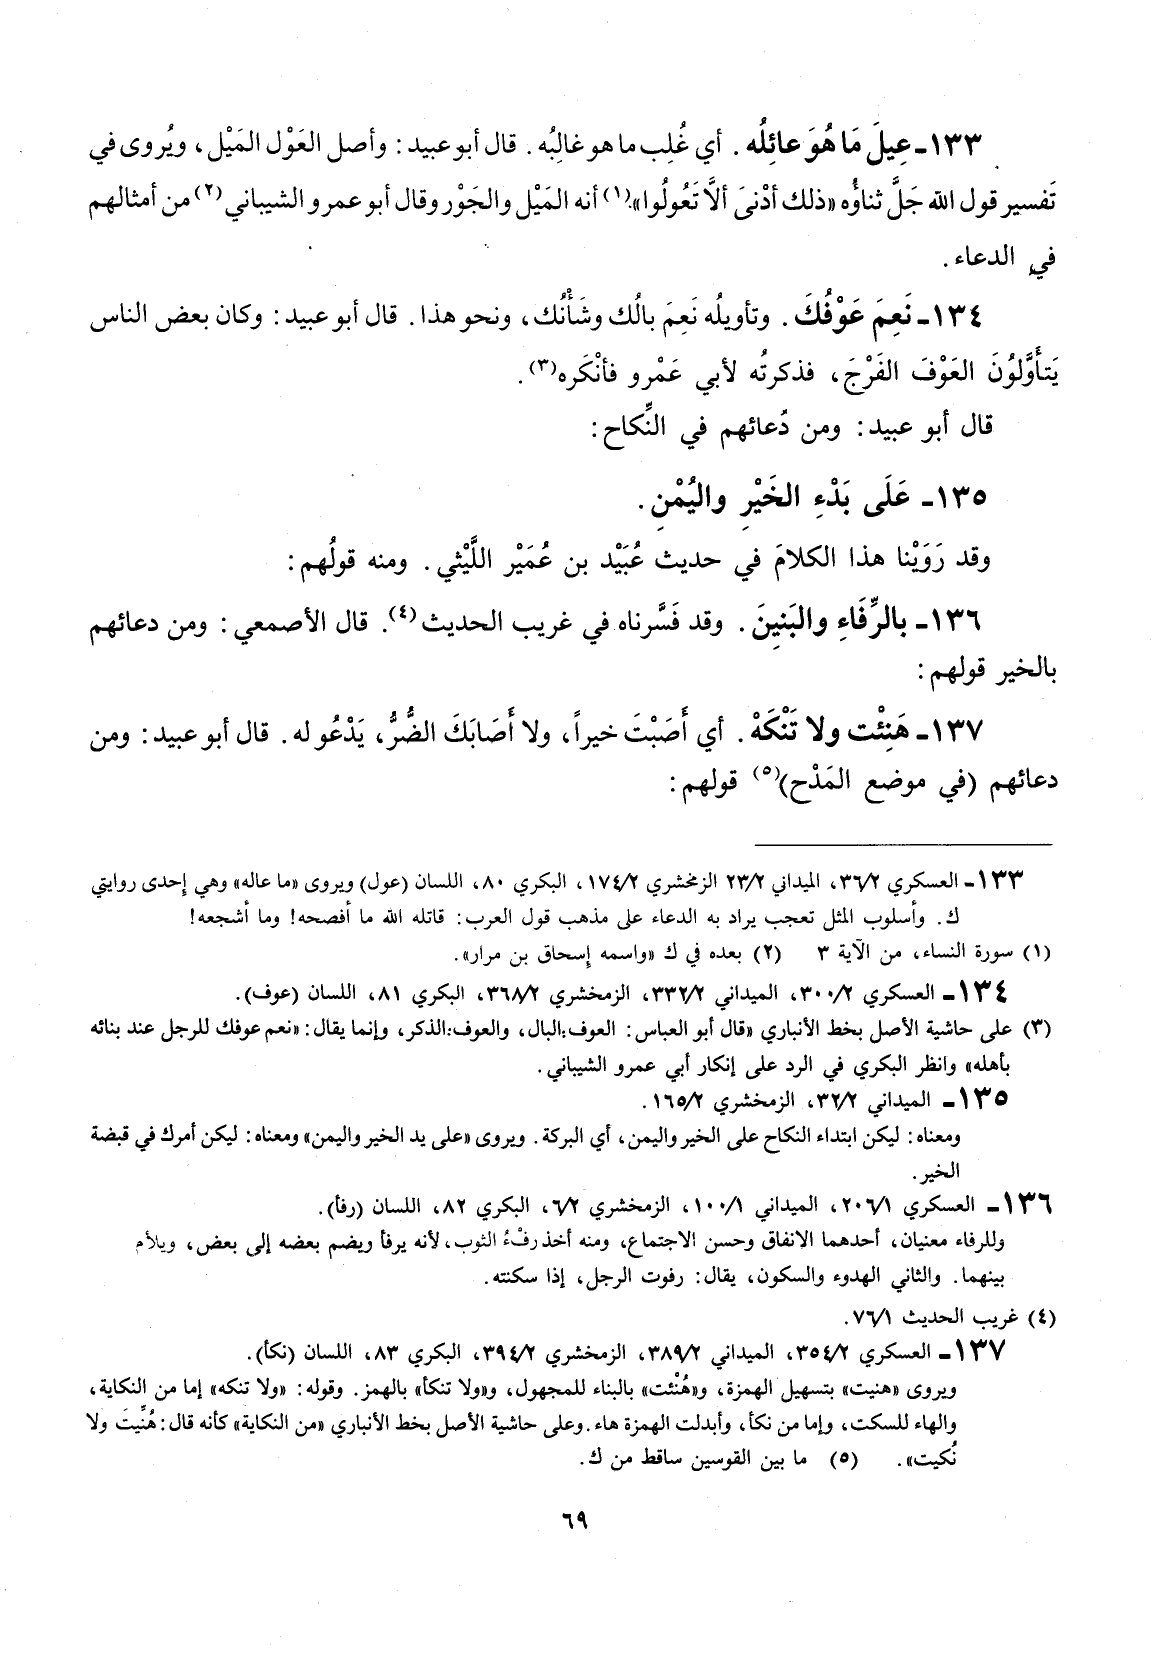 ١٣٣ـ عِيلَ مَا هُوَ عائِلُه . أي غُلِب ما هو غالِبُه . قال أبو عبيد : وأصل العَوْل المَيْل ، ويُروى في
تَفسير قول الله جَلَّ ثناؤُه «ذلك أدْنىَ ألَّا تَعُولُوا»(١) أنه المَيْل والجَوْر وقال أبو عمرو الشيباني(٢) من أمثالهم
في الدعاء .
١٣٤ـ نَعِمَ عَوْفُكَ . وتأويلُه نَعِمَ بالُك وشَأْنُك ، ونحو هذا . قال أبو عبيد : وكان بعض الناس
يَتأَوَّلُونَ العَوْفَ الفَرْجَ ، فذكرتُه لأبي عَمْرو فأنْكَره(٣) .
قال أبو عبيد : ومن دُعائهم في النِّكاح :
١٣٥ـ عَلَى بَدْءِ الخَيْرِ واليُمْنِ .
وقد رَوَيْنا هذا الكلامَ في حديث عُبَيْد بن عُمَيْر اللَّيْثي . ومنه قولُهم :
١٣٦ـ بالرِّفَاءِ والبَنِينَ . وقد فَسَّرناه في غريب الحديث(٤) . قال الأصمعي : ومن دعائهم
بالخير قولهم :
١٣٧ـ هَنِئْت ولا تَنْكَهْ . أي أَصَبْتَ خيراً ، ولا أَصَابَكَ الضُّرُّ ، يَدْعُو له . قال أبو عبيد : ومن
دعائهم (في موضع المَدْح)(٥) قولهم :
١٣٣ـ العسكري ٣٦/٢، الميداني ٢٣/٢ الزمخشري ١٧٤/٢، البكري ٨٠، اللسان (عول) ويروى «ما عاله» وهي إحدى روايتي
ك. وأسلوب المثل تعجب يراد به الدعاء على مذهب قول العرب: قاتله الله ما أفصحه! وما أشجعه!
(١) سورة النساء، من الآية ٣ (٢) بعده في ك «واسمه إسحاق بن مرار».
١٣٤ـ العسكري ٣٠٠/٢، الميداني ٣٣٢/٢، الزمخشري ٣٦٨/٢، البكري ٨١، اللسان (عوف).
(٣) على حاشية الأصل بخط الأنباري «قال أبو العباس: العوف:البال، والعوف:الذكر، وإنما يقال: «نعم عوفك للرجل عند بنائه
بأهله» وانظر البكري في الرد على إنكار أبي عمرو الشيباني.
١٣٥ـ الميداني ٣٢/٢، الزمخشري ١٦٥/٢.
ومعناه: ليكن ابتداء النكاح على الخير واليمن، أي البركة. ويروى «على يد الخير واليمن» ومعناه: ليكن أمرك في قبضة
الخير.
١٣٦ـ العسكري ٢٠٦/١، الميداني ١٠٠/١، الزمخشري ٦/٢، البكري ٨٢، اللسان (رفأ).
وللرفاء معنيان، أحدهما الاتفاق وحسن الاجتماع، ومنه أخذ رفْءُ الثوب، لأنه يرفأ ويضم بعضه إلى بعض، ويلأم
بينهما. والثاني الهدوء والسكون، يقال: رفوت الرجل، إذا سكنته.
(٤) غريب الحديث ٧٦/١.
١٣٧ـ العسكري ٣٥٤/٢، الميداني ٣٨٩/٢، الزمخشري ٣٩٤/٢، البكري ٨٣، اللسان (نكأ).
ويروى «هنيت» بتسهيل الهمزة، و«هُنْئت» بالبناء للمجهول، و«ولا تنكأ» بالهمز. وقوله: «ولا تنكه» إما من النكاية،
والهاء للسكت، وإما من نكأ، وأبدلت الهمزة هاء. وعلى حاشية الأصل بخط الأنباري «من النكاية» كأنه قال: هُنِّيتَ ولا
نُكيت». (٥) ما بين القوسين ساقط من ك.
٦٩